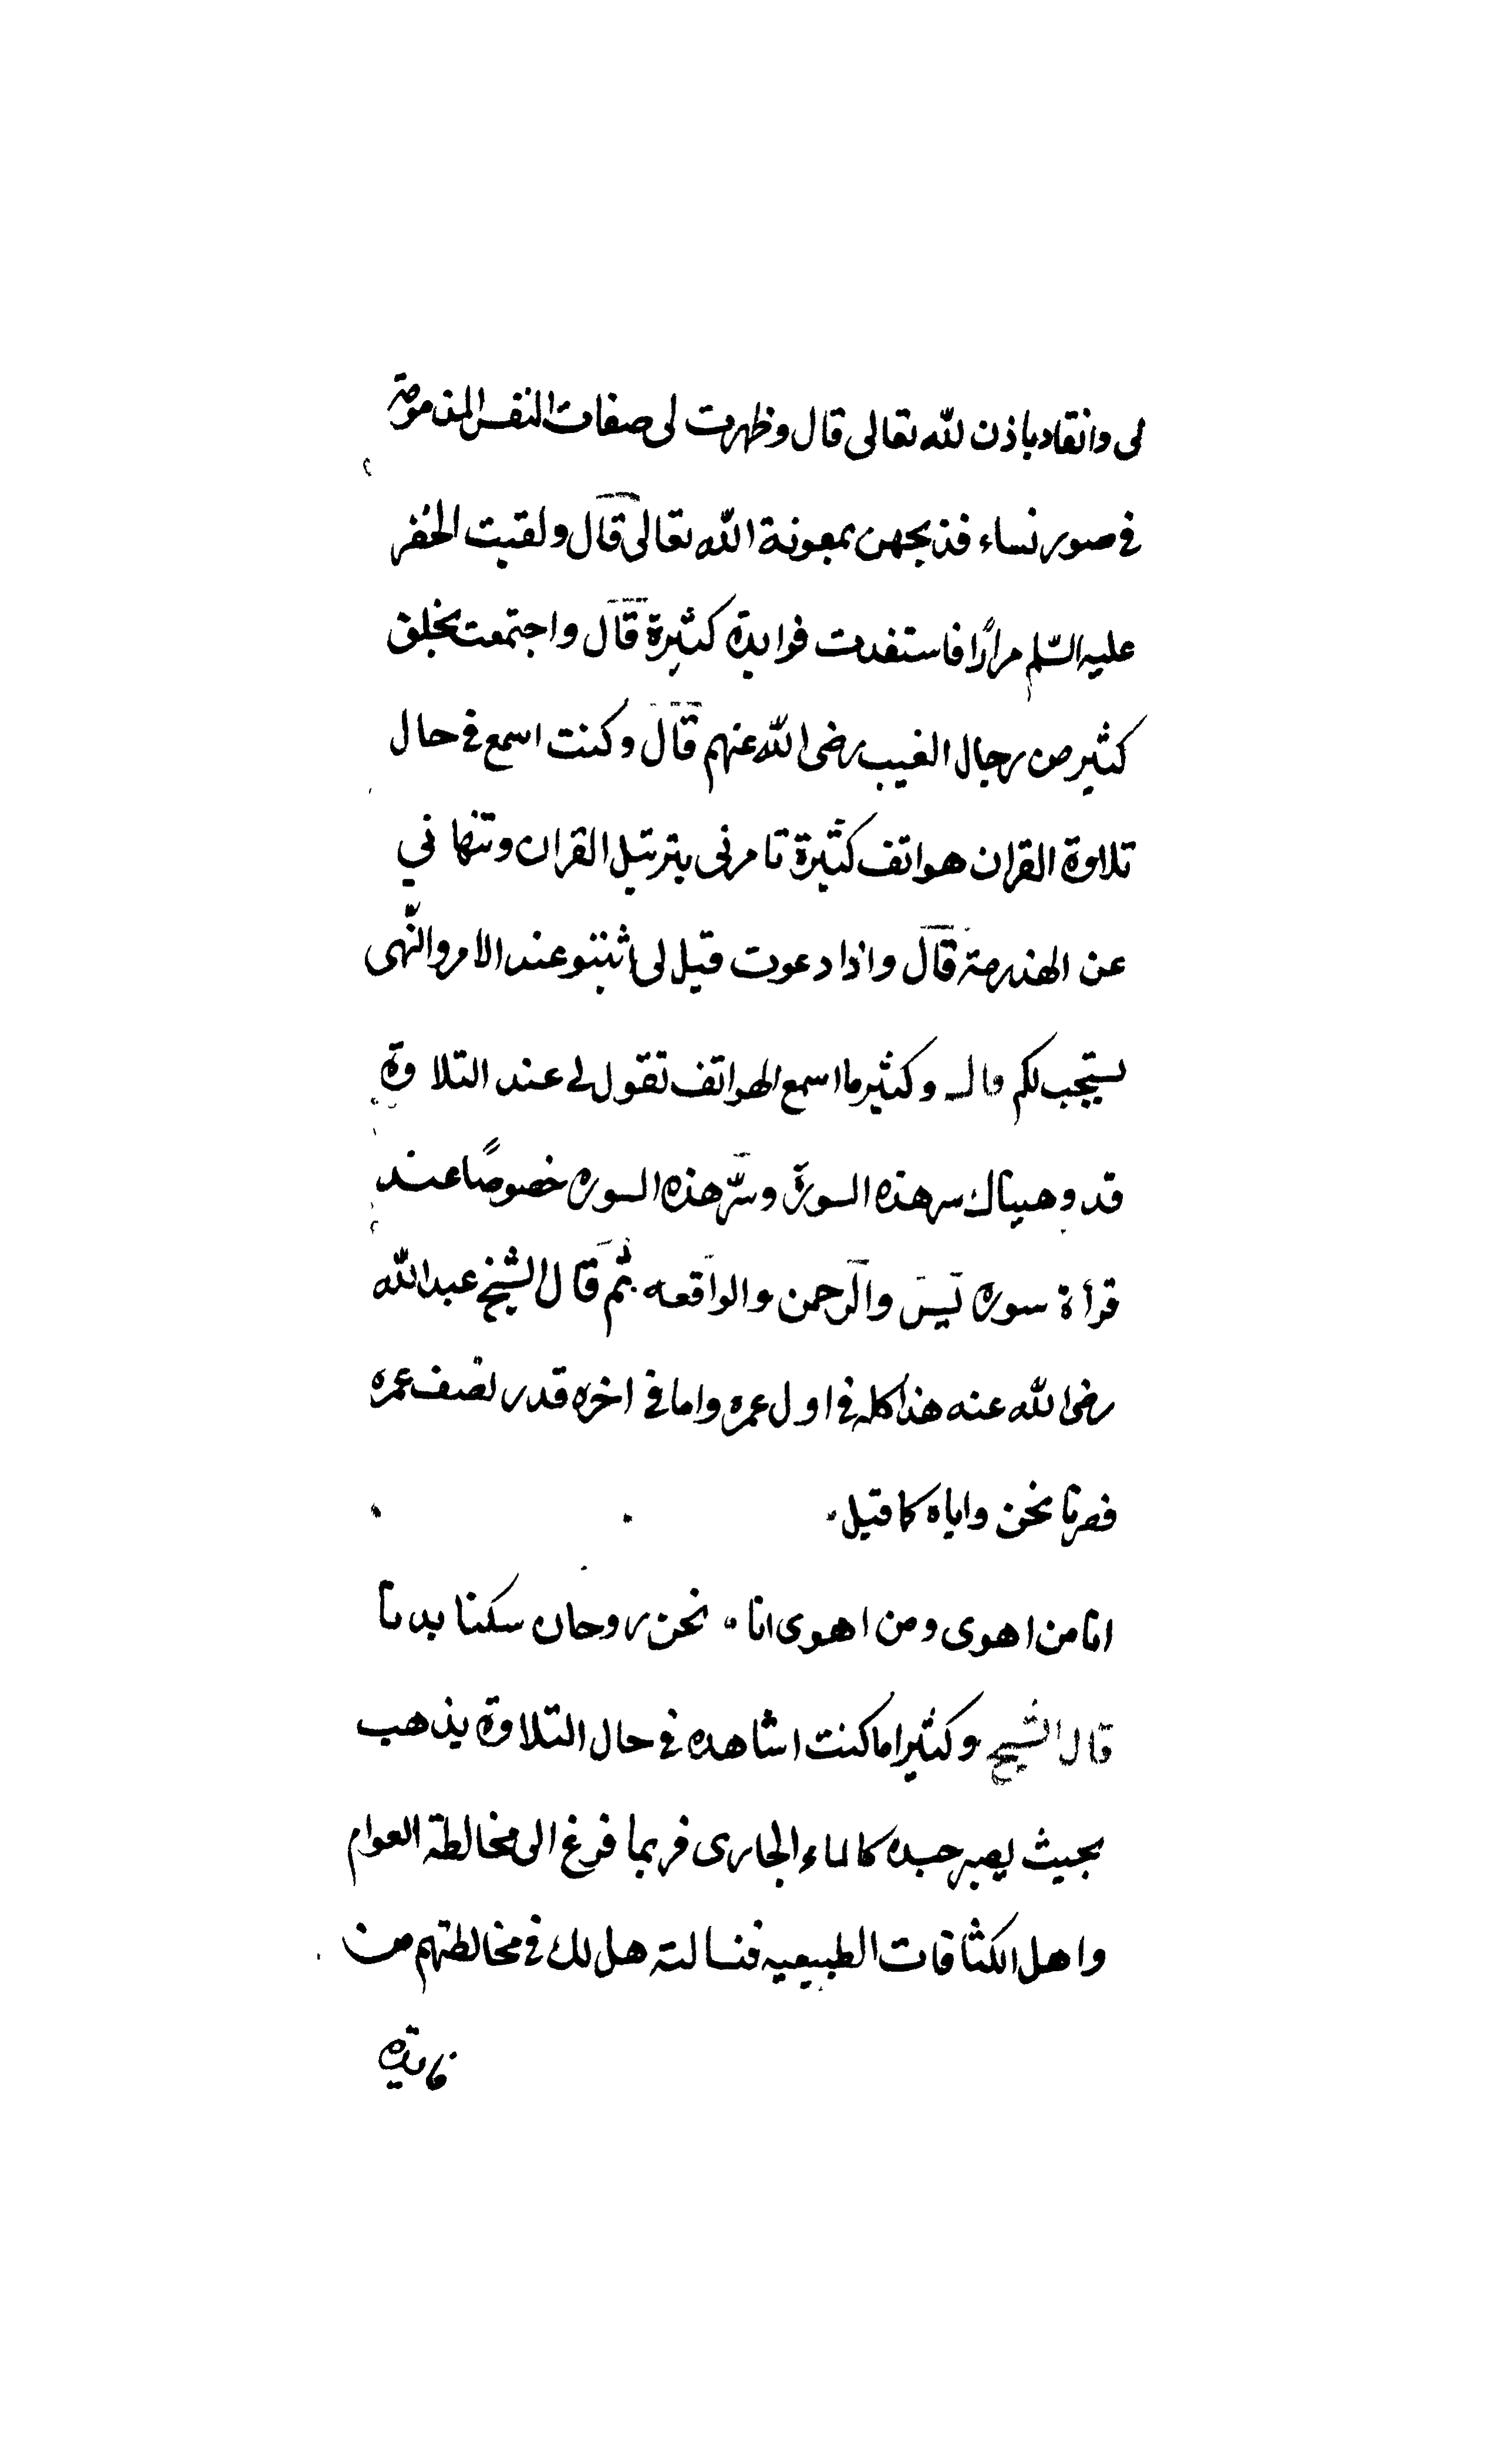 لى وانقاد باذن الله تعالى قال وظهرت لى صفات النفس المذمومة
فى صور نساء فذبحهن بمعونة الله تعالى قال ولقيت الخضر
عليه السّلم مرارًا فاستفدت فوايده كثيرة قال واجتمعت بخلق
كثير من رجال الغيب رضى الله عنهم قال وكنت اسمع فى حال
تلاوة القران هواتف كثيرة تامرنى بترتيل القران وتنهاني
عن الهذرمة قال واذا دعوت قيل لى اثبتو عند الامر والنّهى
يستجب لكم قال وكثير ما اسمع الهواتف تقول لى عند التلاوة
قد وهبناك سر هذه السورة وسّر هذه السوره خصوصًا عند
قرأة سوره يس والرحمن والواقعه ثم قال الشيخ عبدالله
رضى الله عنه هذا كله فى اول عمره واما فى اخره قدر نصف عمره
فصرنا نحن واياه كما قيل
انا من اهوى ومن اهوى انا نحن روحان سكنا بدنا
قال الشيخ وكثيرا ما كنت اشاهده فى حال التلاوة يذهب
بحيث يصير جسده كالماء الجارى فربما فرغ الى مخالطة العوام
واهل الكثافات الطبيعيه فنسالته هل لك فى مخالطتهم من
فايدة